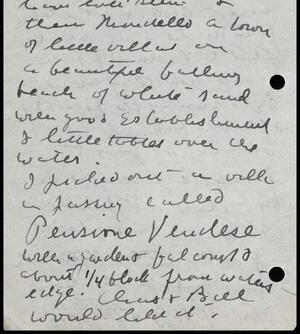 then Mondello a town
of little villas on
a beautiful
beach of white sand
with good Establishment
& little tables over the
water.
I picked out a villa
in passing called
Pensione Vendese
with a garden &
about 1/4 block from waters
edge. Chas & Bill
would like it.